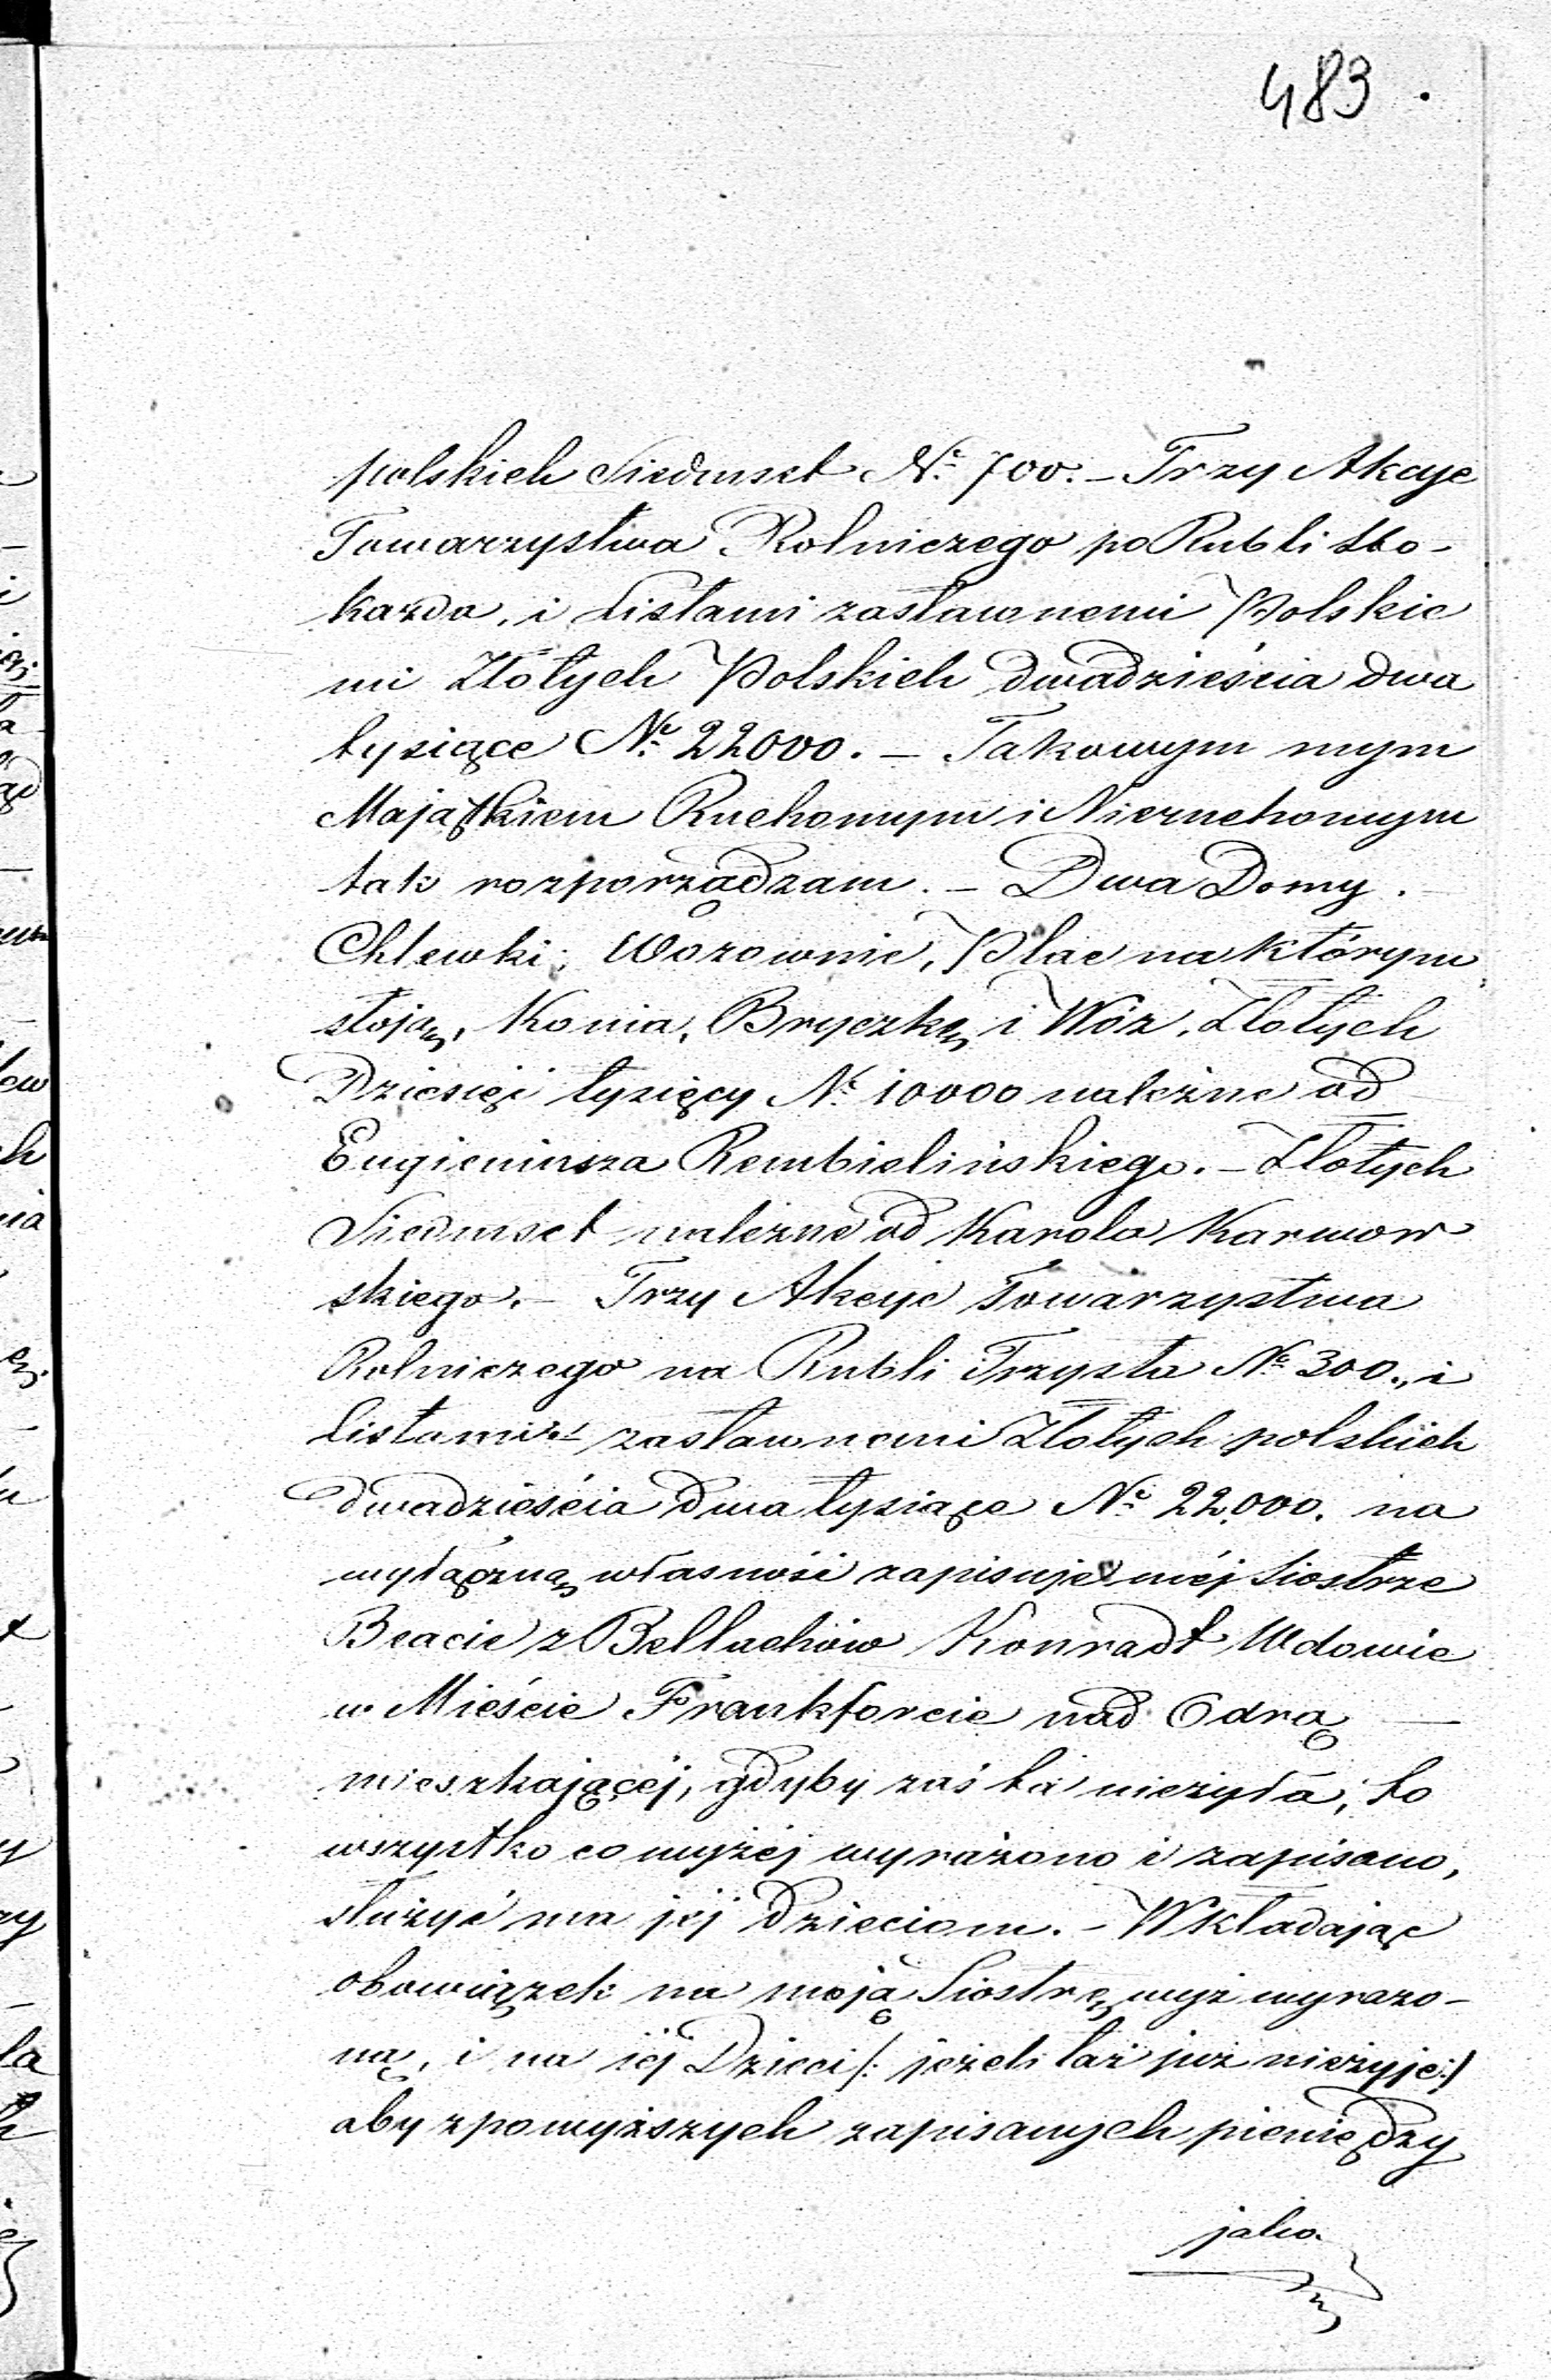 483.
polskich Siedmset N<sup>o</sup> 700. – Trzy Akcye
Towarzystwa Rolniczego po Rubli sto –
każda, i Listami zastawnemi Polskie
mi Złotych Polskich dwadzieścia dwa
tysiące N<sup>o</sup> 22000. – Takowym mym
Majątkiem Ruchomym i Nieruchomym
tak rozporządzam. – Dwa Domy.
Chlewki, Wozownie, Plac na którym
stoją, Konia, Bryczkę i Wóz, Złotych
Dziesięć tysięcy N<sup>o</sup> 10000 należne od
Eugieniusza Rembielińskiego. – Złotych
Siedmset należne od Karola Karwow
skiego. – Trzy Akcye Towarzystwa
Rolniczego na Rubli Trzysta N<sup>o</sup> 300., i
Listami zastawnemi Złotych polskich
dwadzieścia dwa tysiące N<sup>o</sup> 22,000. na
wyłączną własność zapisuję méj Siostrze
Beacie z Bellachów Konradt Wdowie
w Mieście Frankforcie nad Odrą —
mieszkającéj, gdyby zaś ta nieżyła, to
wszystko co wyżéj wyrażono i zapisano,
służyć ma jéj Dzieciom. – Wkładając
obowiązek na moją Siostrę wyż wyrażo –
ną, i na jéj Dzieci /: jeżeli taż już nieżyje :/
aby z powyższych zapisanych pieniędzy
jako